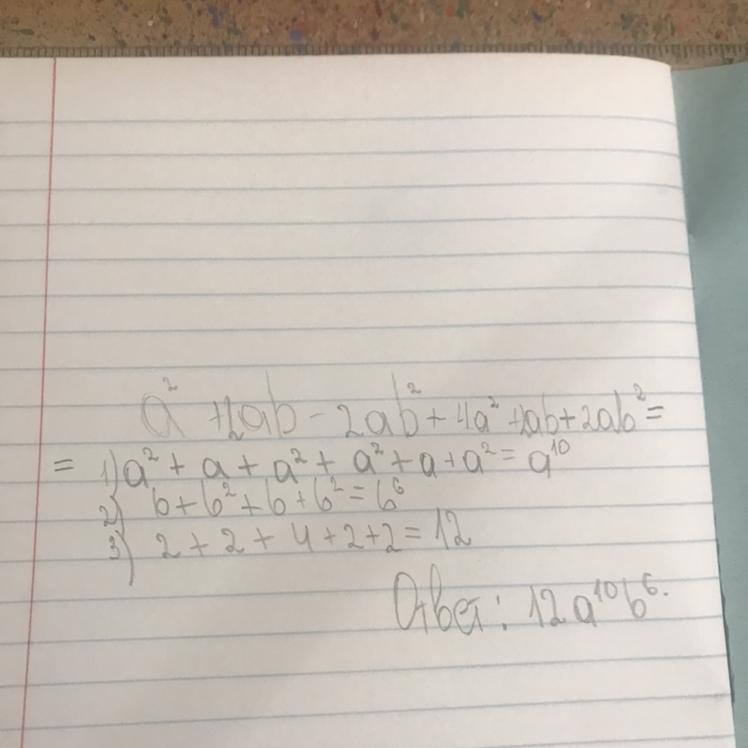 a² + 2ab - 2ab² + 4a² + 2ab + 2ab² =
= 1) a² + a + a² + a² + a + a² = a¹⁰
2) b + b² + b + b² = b⁶
3) 2 + 2 + 4 + 2 + 2 = 12
Ответ: 12a¹⁰b⁶.